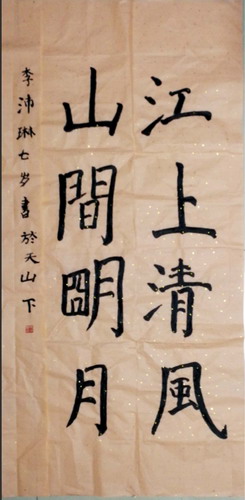 江上清風
山間明月
李沛琳七岁書於天山下